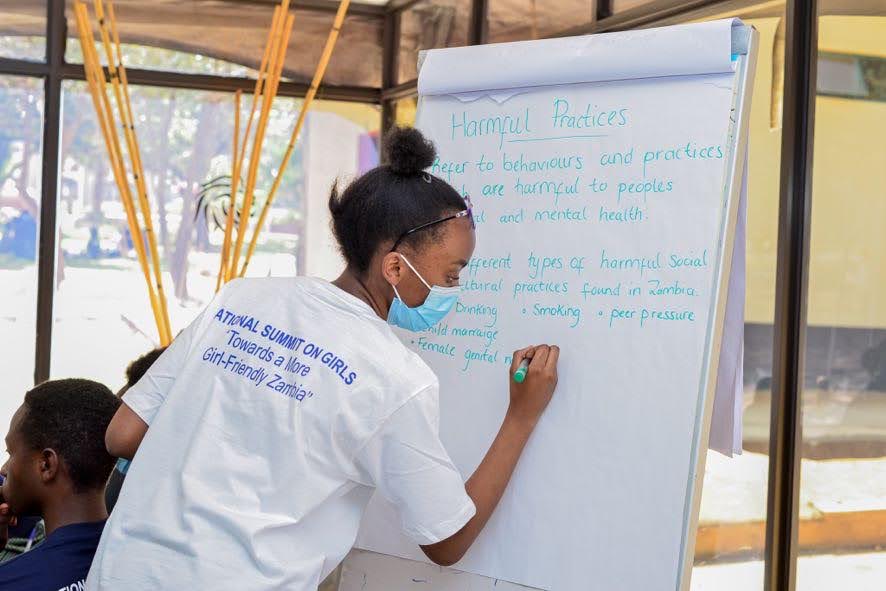 Harmful Practices
Refer to behaviours and practices
are harmful to peoples
and mental health.
types of harmful Social
practices found in Zambia.
Drinking • Smoking • peer pressure
child marraige
• Female genital m
ATIONAL SUMMIT ON GIRLS
"Towards a More
Girl-Friendly Zambia"
TION